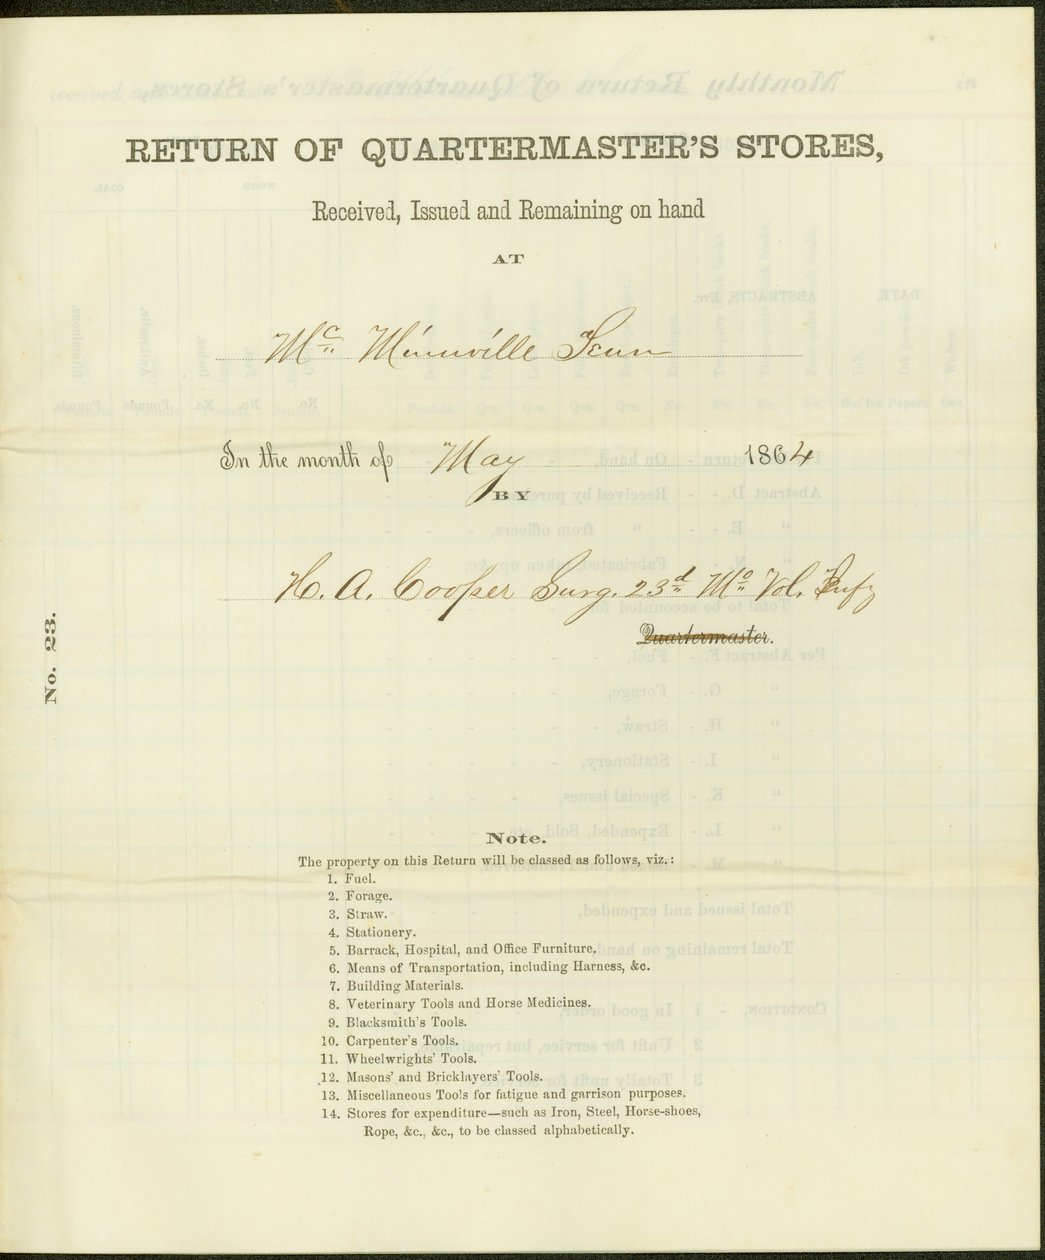 RETURN OF QUARTERMASTER'S STORES,
Received, Issued and Remaining on hand
AT
Mc Minnville Tenn
In the month of May 1864
BY
H. A. Cooper Surg. 23d Mo Vol. Infy
Quartermaster.
No. 23.
Note.
The property on this Return will be classed as follows, viz.:
1. Fuel.
2. Forage.
3. Straw.
4. Stationery.
5. Barrack, Hospital, and Office Furniture.
6. Means of Transportation, including Harness, &c.
7. Building Materials.
8. Veterinary Tools and Horse Medicines.
9. Blacksmith's Tools.
10. Carpenter's Tools.
11. Wheelwrights' Tools.
12. Masons' and Bricklayers' Tools.
13. Miscellaneous Tools for fatigue and garrison purposes.
14. Stores for expenditure—such as Iron, Steel, Horse-shoes,
Rope, &c., &c., to be classed alphabetically.